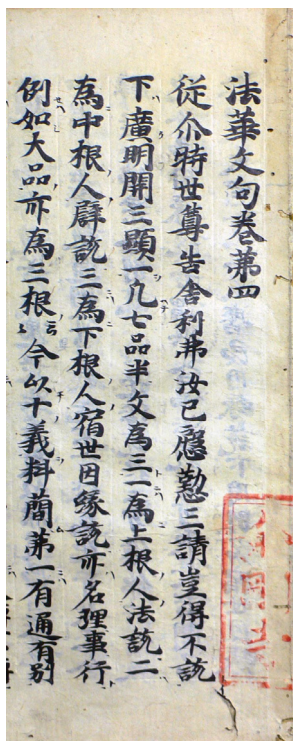 法華文句卷第四
從尒特世尊告舍利弗汝已慇懃三請豈得不說
下廣明開三顯一凡七品半文為三一為上根人法說二
為中根人譬說三為下根人宿世因緣說亦名理事行
例如大品亦為三根云云今以十義料蕳第一有通有別